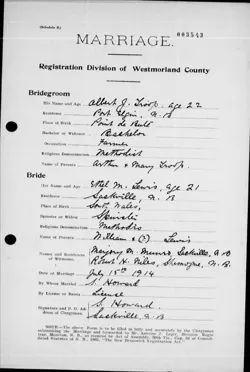 (Schedule B.)
003543
MARRIAGE.
Registration Division of Westmorland County
Bridegroom
His Name and Age Albert J. Troop age 22
Residence Port Elgin, N.B
Place of Birth Point de Bute
Bachelor or Widower Bachelor
Occupation Farmer
Religious Denomination Methodist
Name of Parents Arthur & Mary Troop.
Bride
Her Name and Age Ethel M. Lewis, age 21
Residence Sackville, N. B
Place of Birth South Wales,
Spinster or Widow Spinster
Religious Denomination Methodist
Name of Parents William & (?) Lewis
Names and Residences of Witnesses Marjory M. Munro Sackville N.B
H. Niles, Shemogue, N. B.
Date of Marriage July 15th 1914
By Whom Married S. Howard
By License or Banns License
Signature and P. O. Address of Clergyman S. Howard.
Sackville N.B